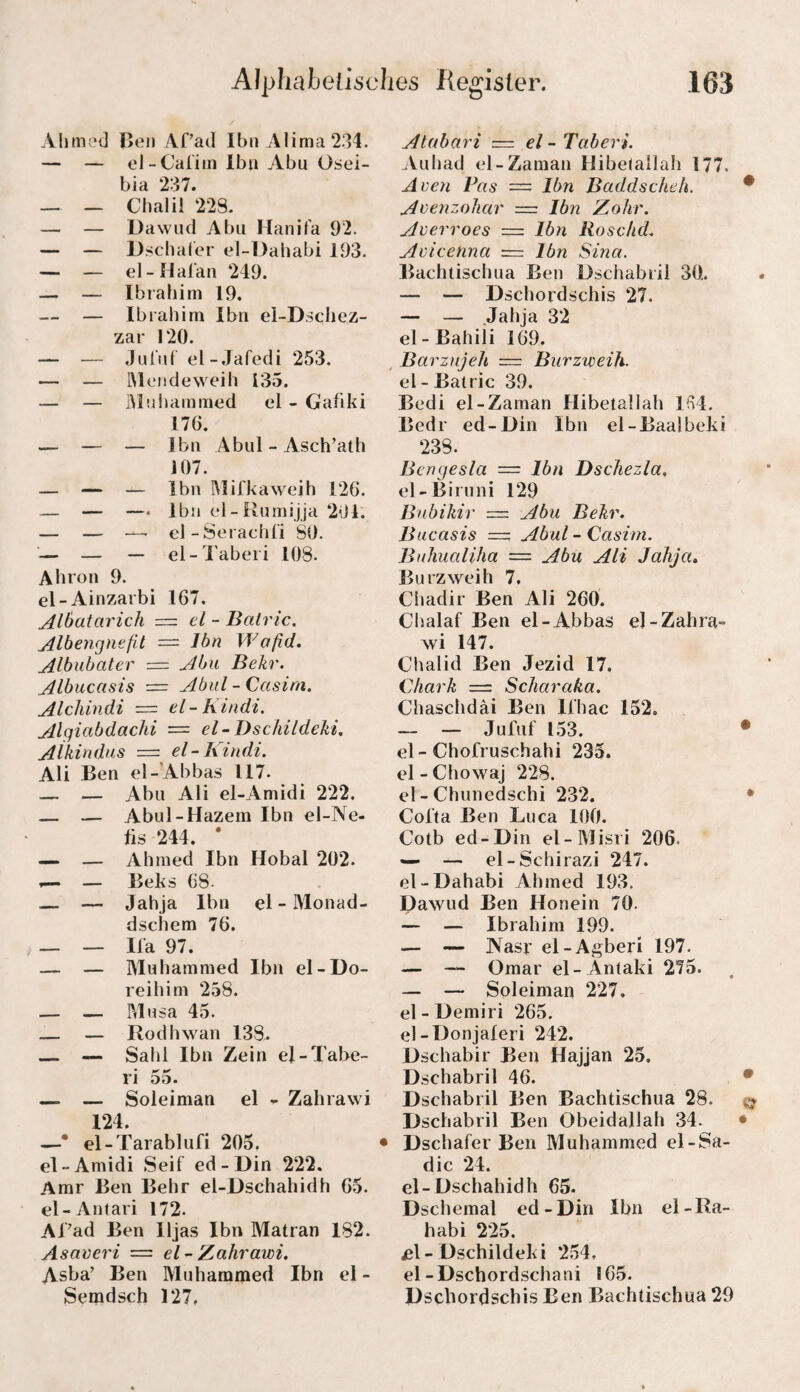 Alphabetisches Register. 163
Ahmed Ben Aſ’ad Ibn Alima 234.
— — el-Caſim Ibn Abu Osei-
bia 237.
— — Chalil 228.
— — Dawud Abu Hanifa 92.
— — Dschafer el-Dahabi 193.
— — el-Haſan 249.
— — Ibrahim 19.
— — Ibrahim Ibn el-Dschez-
zar 120.
— — Juſuf el-Jafedi 253.
— — Mendeweih 135.
— — Muhammed el-Gafiki
176.
— — — Ibn Abul-Asch’ath
107.
— — — Ibn Miſkaweih 126.
— — —. Ibn el-Rumijja 201.
— — — el-Serachſi 80.
— — — el-Taberi 108.
Ahron 9.
el-Ainzarbi 167.
Albatarich = el-Batric.
Albengnefit = Ibn Wafid.
Albubater = Abu Bekr.
Albucasis = Abul-Casim.
Alchindi = el-Kindi.
Algiabdachi = el-Dschildeki.
Alkindus = el-Kindi.
Ali Ben el-Abbas 117.
— — Abu Ali el-Amidi 222.
— — Abul-Hazem Ibn el-Ne-
fis 244.
— — Ahmed Ibn Hobal 202.
— — Beks 68.
— — Jahja Ibn el-Monad-
dschem 76.
— — Iſa 97.
— — Muhammed Ibn el-Do-
reihim 258.
— — Musa 45.
— — Rodhwan 138.
— — Sahl Ibn Zein el-Tabe-
ri 55.
— — Soleiman el-Zahrawi
124.
— el-Tarabluſi 205.
el-Amidi Seif ed-Din 222.
Amr Ben Behr el-Dschahidh 65.
el-Antari 172.
Aſ’ad Ben Iljas Ibn Matran 182.
Asaveri = el-Zahrawi.
Asba’ Ben Muhammed Ibn el-
Semdsch 127.
Atabari = el-Taberi.
Auhad el-Zaman Hibetallah 177.
Aven Pas = Ibn Baddscheh.
Avenzohar = Ibn Zohr.
Averroes = Ibn Roschd.
Avicenna = Ibn Sina.
Bachtischua Ben Dschabril 30.
— — Dschordschis 27.
— — Jahja 32
el-Bahili 169.
Barzujeh = Burzweih.
el-Batric 39.
Bedi el-Zaman Hibetallah 184.
Bedr ed-Din Ibn el-Baalbeki
238.
Bengesla = Ibn Dschezla.
el-Biruni 129
Bubikir = Abu Bekr.
Bucasis = Abul-Casim.
Buhualiha = Abu Ali Jahja.
Burzweih 7.
Chadir Ben Ali 260.
Chalaf Ben el-Abbas el-Zahra-
wi 147.
Chalid Ben Jezid 17.
Chark = Scharaka.
Chaschdài Ben Iſhac 152.
— — Juſuf 153.
el-Choſruschahi 235.
el-Chowaj 228.
el-Chunedschi 232.
Coſta Ben Luca 100.
Cotb ed-Din el-Misri 206.
— — el-Schirazi 247.
el-Dahabi Ahmed 193.
Dawud Ben Honein 70.
— — Ibrahim 199.
— — Nasr el-Agberi 197.
— — Omar el-Antaki 275.
— — Soleiman 227.
el-Demiri 265.
el-Donjaſeri 242.
Dschabir Ben Hajjan 25.
Dschabril 46.
Dschabril Ben Bachtischua 28.
Dschabril Ben Obeidallah 34.
Dschafer Ben Muhammed el-Sa-
dic 24.
el-Dschahidh 65.
Dschemal ed-Din Ibn el-Ra-
habi 225.
el-Dschildeki 254.
el-Dschordschani 165.
Dschordschis Ben Bachtischua 29